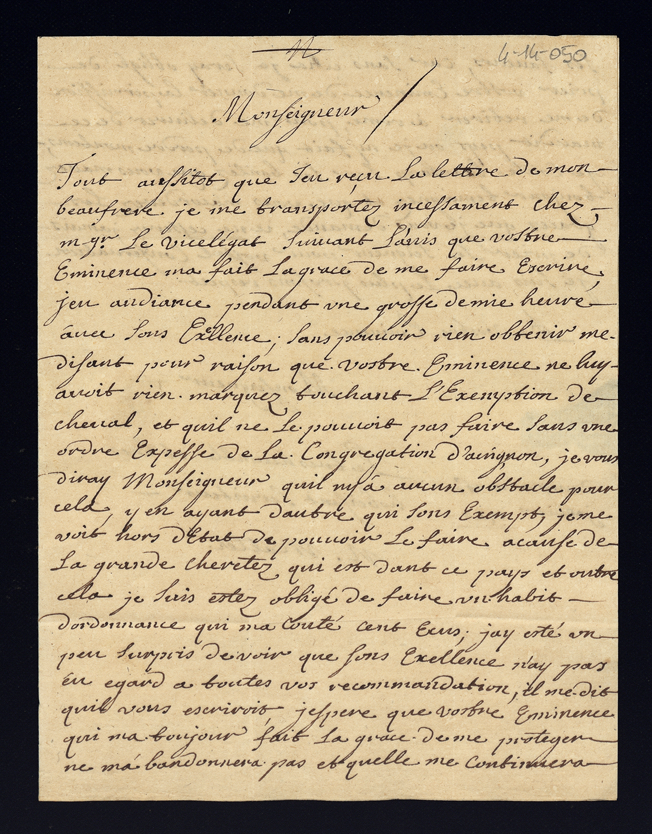 4-14-050
Monseigneur /
Tout aussitot que Jeu reçu La lettre de mon
beaufrere je me transportez incessament chez
m-gr. Le vicelégat suivant L'avis que vostre
Eminence ma fait La grace de me faire Escrire,
jeu audiance pendant vne grosse demie heure
auec sons Exellence; sans pouvoir rien obtenir me
disant pour raison que vostre Eminence ne luy
avoit rien marquez touchant L'Exemption de
cheval, et quil ne Le pouvoit pas faire sans vne
ordre Expesse de La Congregation d'avignon, je vous
diray Monseigneur quil ny a aucun obstacle pour
cela, y en ayant dautre qui sons Exempt, je me
voit hors d'Etat de pouvoir Le faire acause de
La grande cheretez qui est dant ce pays et outre
cela je suis estez obligé de faire vn habit
dordonnance qui ma couté cent Ecus; jay esté vn
peu surpris de voir que sons Exellence n'ay pas
eu egard a toutes vos recommandation, il me dit
quil vous escriroit jespere que vostre Eminence
qui ma toujour fait La grace de me proteger
ne ma bandonnera pas et quelle me Continuera